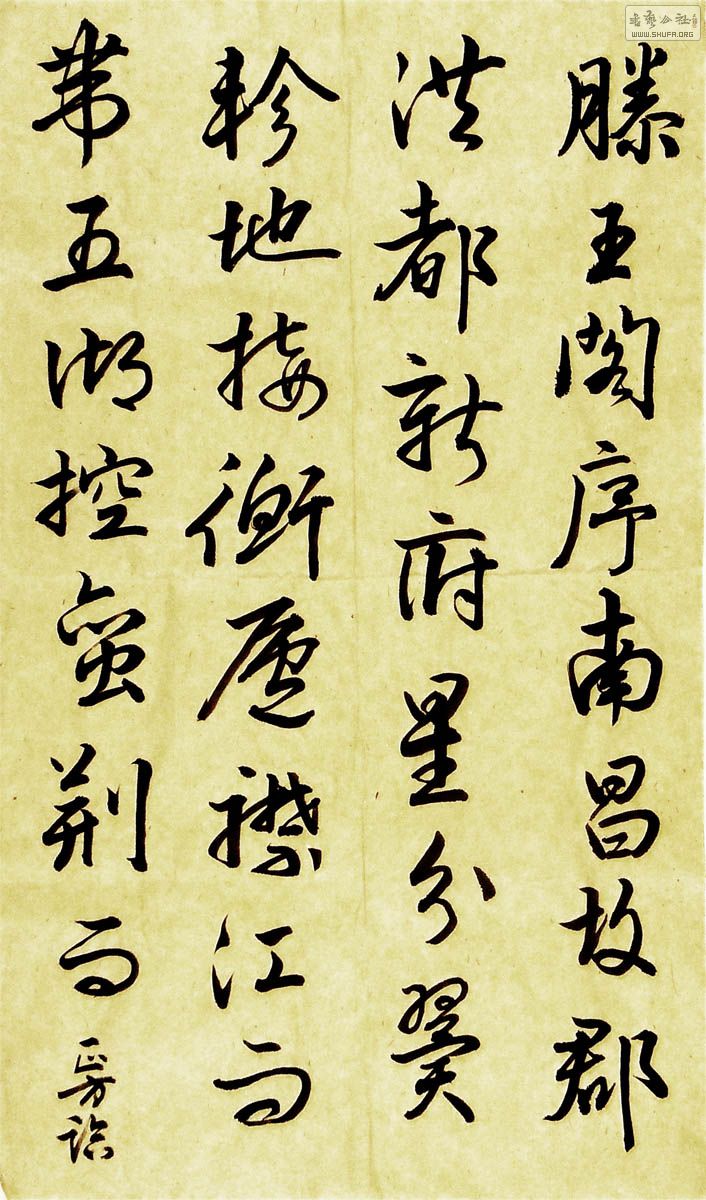 滕王閣序南昌故郡
洪都新府星分翼
軫地接衡廬襟江而
帶五湖控蠻荊而
臨
書藝公社
WWW.SHUFA.ORG